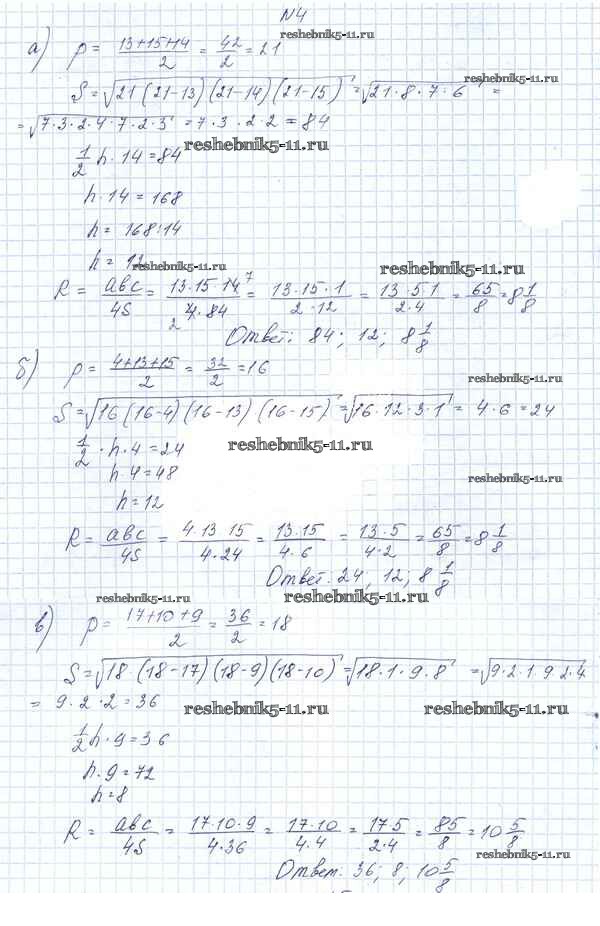 N4
reshebnik5-11.ru
а) p = (13+15+14)/2 = 42/2 = 21
reshebnik5-11.ru
S = √(21(21-13)(21-14)(21-15)) = √(21·8·7·6) =
= √(7·3·2·4·7·2·3) = 7·3·2·2 = 84
reshebnik5-11.ru
1/2 h·14 = 84
h·14 = 168
h = 168:14
h = 12
reshebnik5-11.ru
reshebnik5-11.ru
R = abc/4S = 13·15·14/4·84 = 13·15·1/2·12 = 13·5·1/2·4 = 65/8 = 8 1/8
Ответ: 84; 12; 8 1/8
б) p = (4+13+15)/2 = 32/2 = 16
reshebnik5-11.ru
S = √(16(16-4)(16-13)(16-15)) = √(16·12·3·1) = 4·6 = 24
1/2·h·4 = 24
reshebnik5-11.ru
h·4 = 48
reshebnik5-11.ru
h = 12
R = abc/4S = 4·13·15/4·24 = 13·15/4·6 = 13·5/4·2 = 65/8 = 8 1/8
Ответ: 24; 12; 8 1/8
reshebnik5-11.ru
reshebnik5-11.ru
в) p = (17+10+9)/2 = 36/2 = 18
S = √(18·(18-17)(18-9)(18-10)) = √(18·1·9·8) = √(9·2·1·9·2·4)
= 9·2·2 = 36
reshebnik5-11.ru
reshebnik5-11.ru
1/2 h·9 = 36
h·9 = 72
h = 8
R = abc/4S = 17·10·9/4·36 = 17·10/4·4 = 17·5/2·4 = 85/8 = 10 5/8
reshebnik5-11.ru
Ответ: 36; 8; 10 5/8